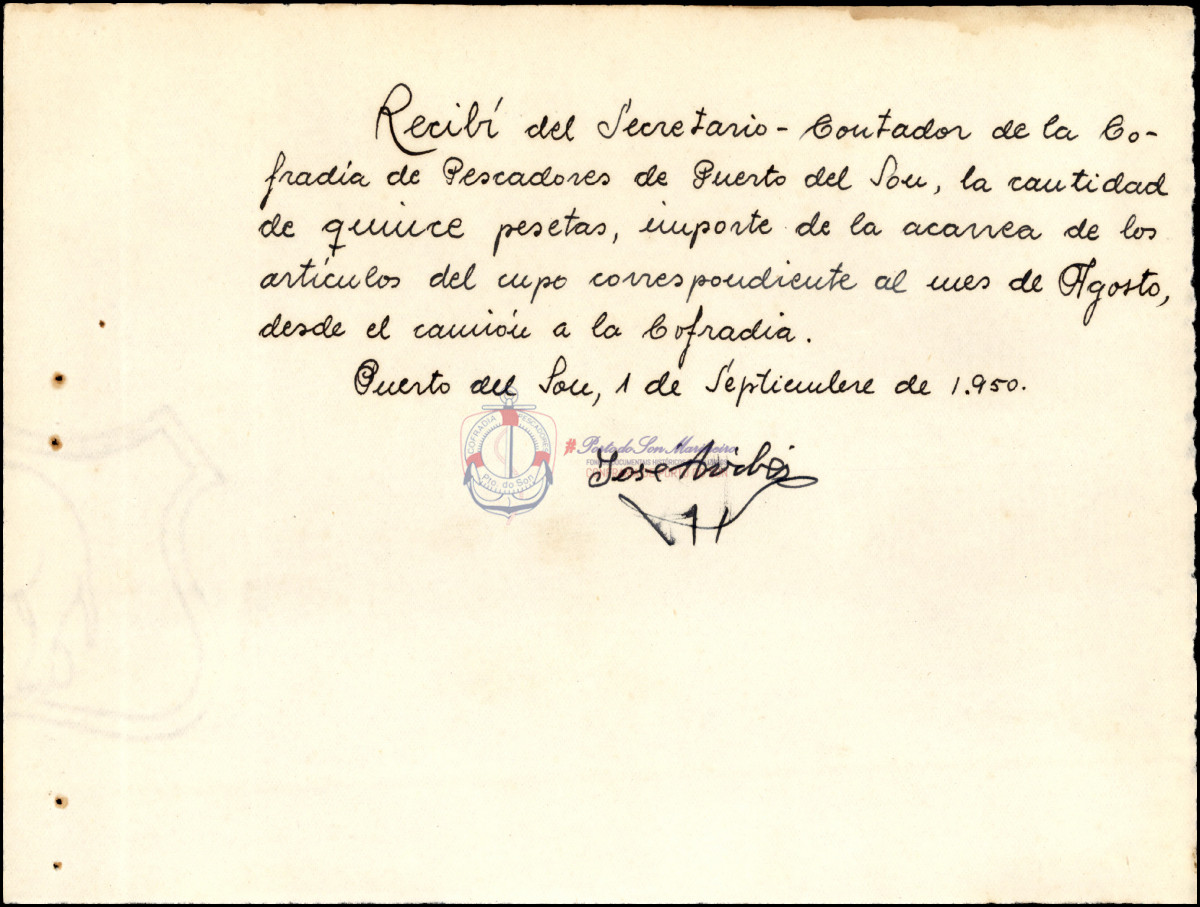 Recibí del Secretario-Contador de la Co-
fradía de Pescadores de Puerto del Son, la cantidad
de quince pesetas, importe de la acarrea de los
artículos del cupo correspondiente al mes de Agosto,
desde el camión a la Cofradia.
Puerto del Son, 1 de Septiembre de 1.950.
COFRADIA PESCADORES
Pto. do Son
#Porto do Son Marineiro
Jose